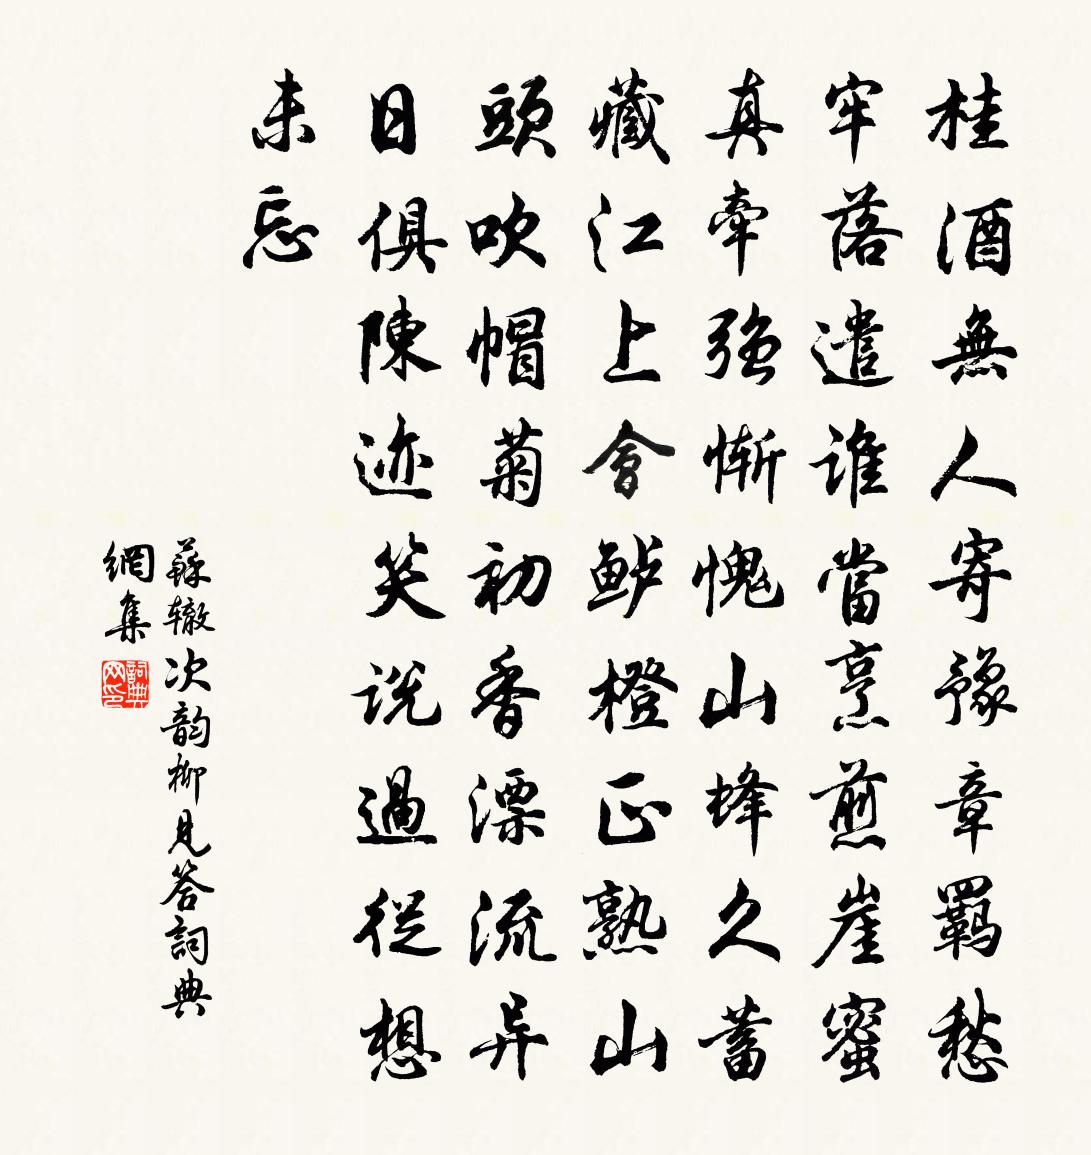 桂酒無人寄豫章羈愁
牢落遣誰當烹煎崖蜜
真牽强慚愧山蜂久蓄
藏江上會鲈橙正熟山
頭吹帽菊初香漂流异
日俱陳迹笑说過從想
未忘
蘇辙次韵柳見答詞典
網集
詞典网印